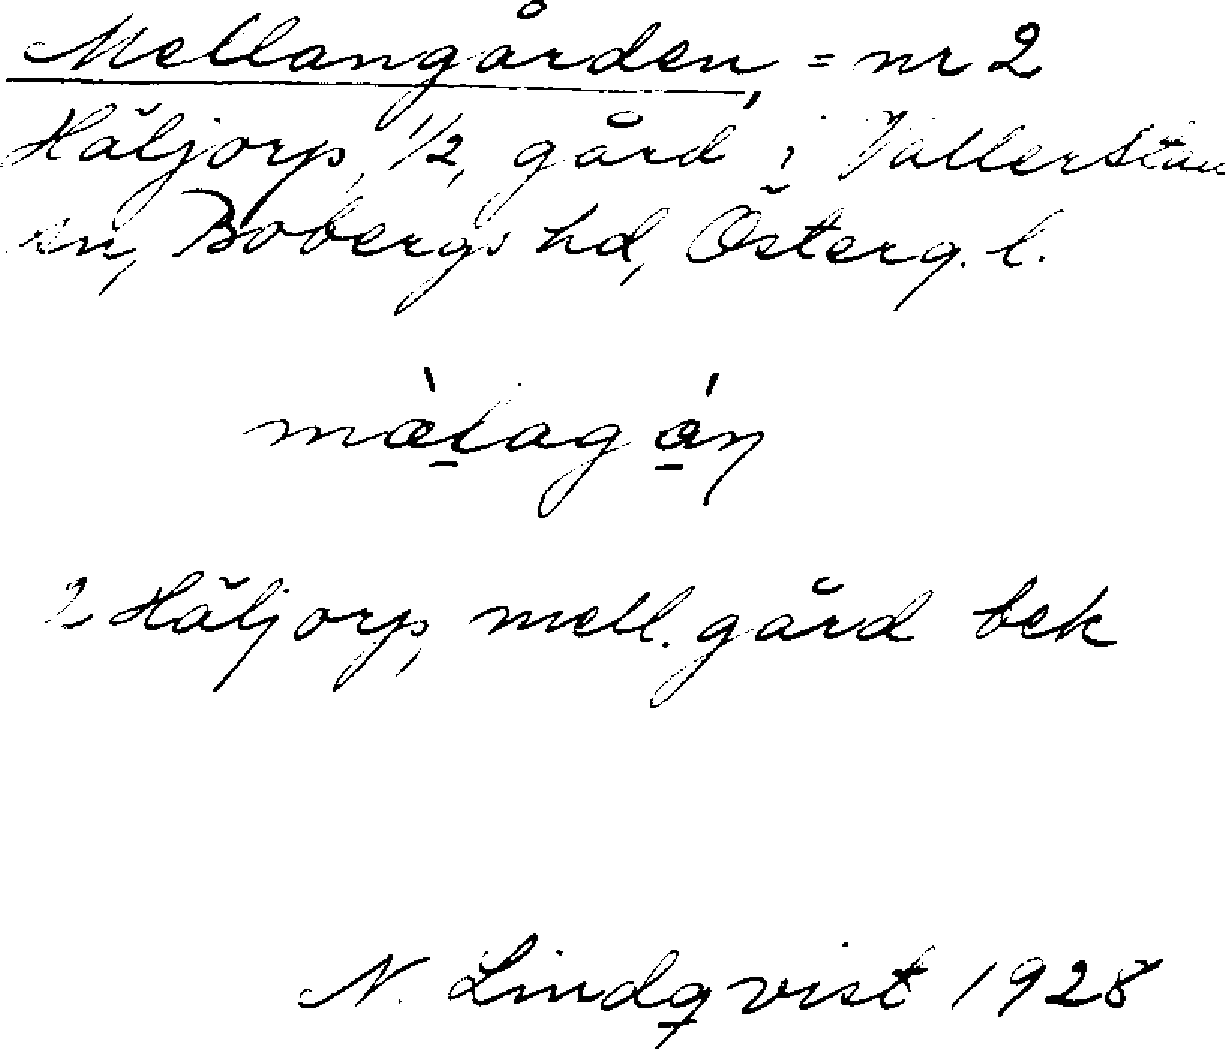 Mellangården, = nr 2
Håljorp, 1/2, gård i Vallerstau
sn, Bobergs hd, Österg. l.
2 Håljorp, mell. gård bek
N. Lindqvist 1928